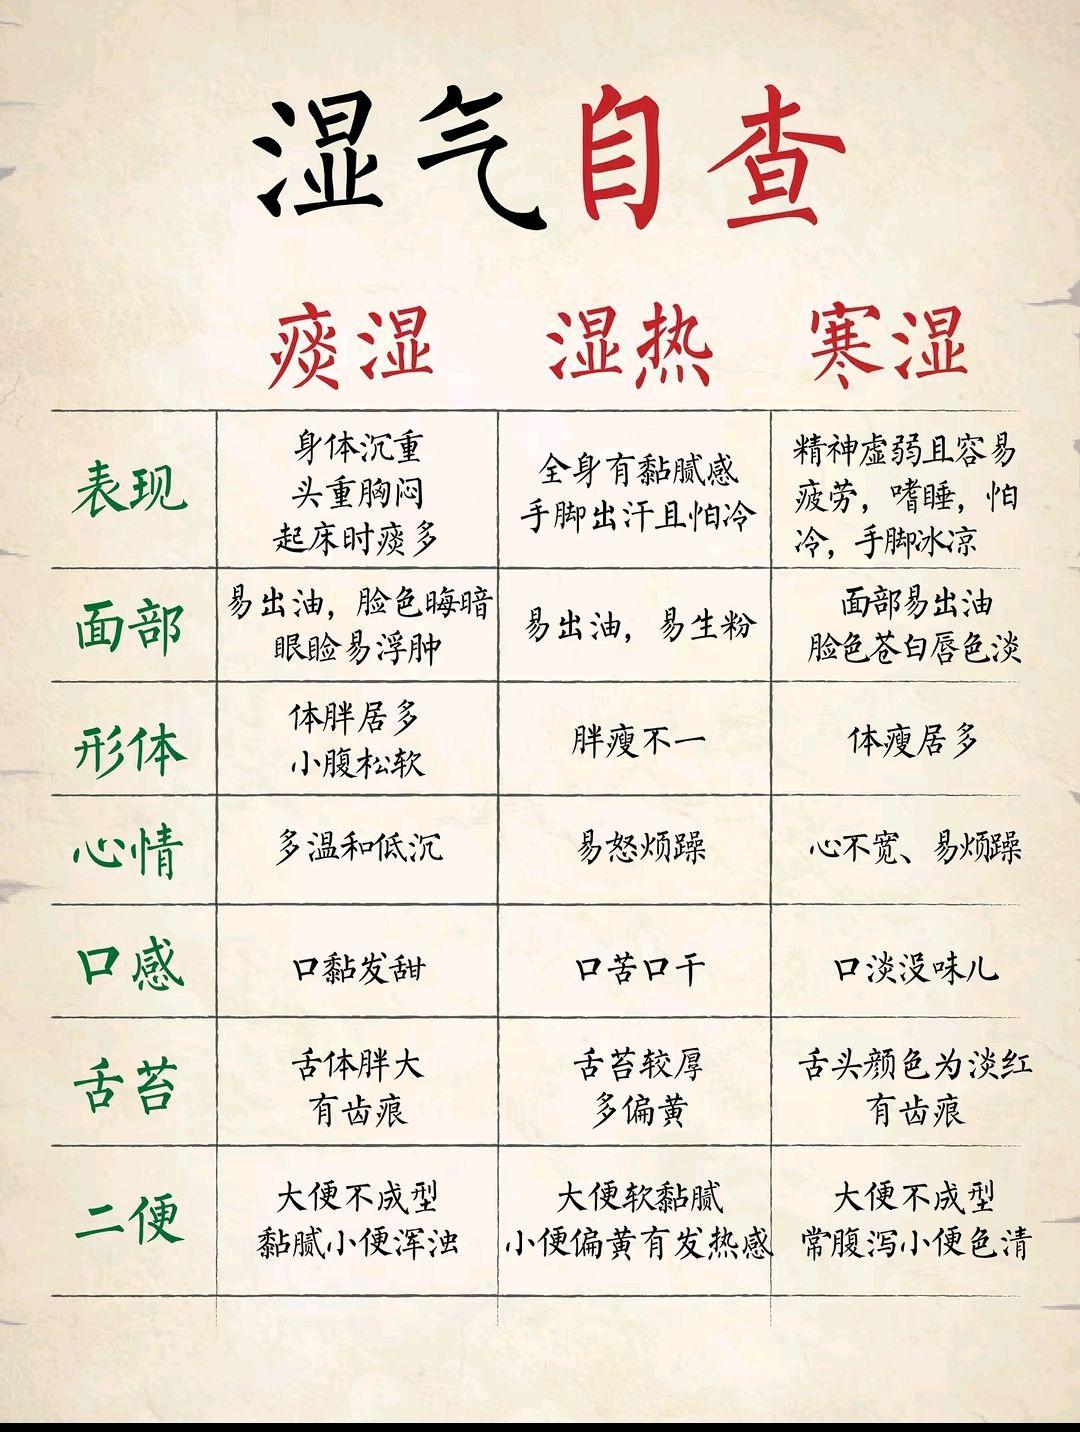 湿气自查
痰湿 湿热 寒湿
表现
身体沉重
头重胸闷
起床时痰多
全身有黏腻感
手脚出汗且怕冷
精神虚弱且容易
疲劳，嗜睡，怕
冷，手脚冰凉
面部
易出油，脸色晦暗
眼睑易浮肿
易出油，易生粉
面部易出油
脸色苍白唇色淡
形体
体胖居多
小腹松软
胖瘦不一
体瘦居多
心情
多温和低沉
易怒烦躁
心不宽、易烦躁
口感
口黏发甜
口苦口干
口淡没味儿
舌苔
舌体胖大
有齿痕
舌苔较厚
多偏黄
舌头颜色为淡红
有齿痕
二便
大便不成型
黏腻小便浑浊
大便软黏腻
小便偏黄有发热感
大便不成型
常腹泻小便色清